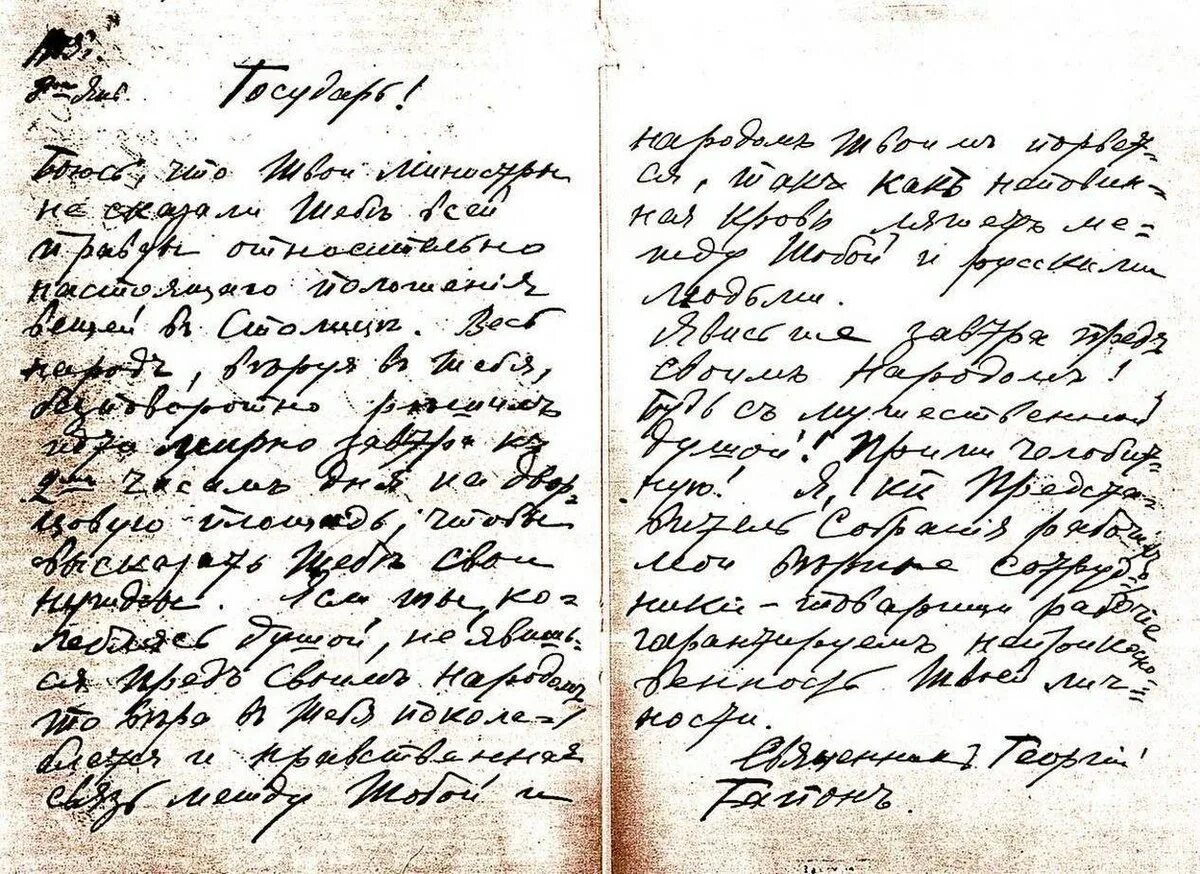 8го Янв.
Государь!
Боюсь, что Твои Министры
не сказали Тебѣ всей
правды относительно
настоящаго положенія
вещей въ Столицѣ. Весь
народъ, вѣруя въ Тебя,
безповоротно рѣшилъ
идти мирно завтра къ
2мъ часамъ дня на Двор-
цовую площадь, чтобы
высказать Тебѣ свои
нужды. Если Ты, ко-
леблясь душой, не явишь-
ся предъ Своимъ народомъ,
то вѣра въ Тебя поколе-
блется и нравственная
связь между Тобой и
народомъ Твоимъ порвет-
ся, такъ какъ неповин-
ная кровь ляжетъ ме=
жду Тобой и русскими
людьми.
Явись же завтра предъ
своимъ Народомъ!
Будь съ мужественной
душой! Прими челобит-
ную! Я, какъ Предста-
витель Собранія рабочихъ,
мои вѣрные сотруд-
ники - товарищи рабочіе
гарантируемъ неприкосно-
венность Твоей лич=
ности.
Священникъ Георгій
Гапонъ.